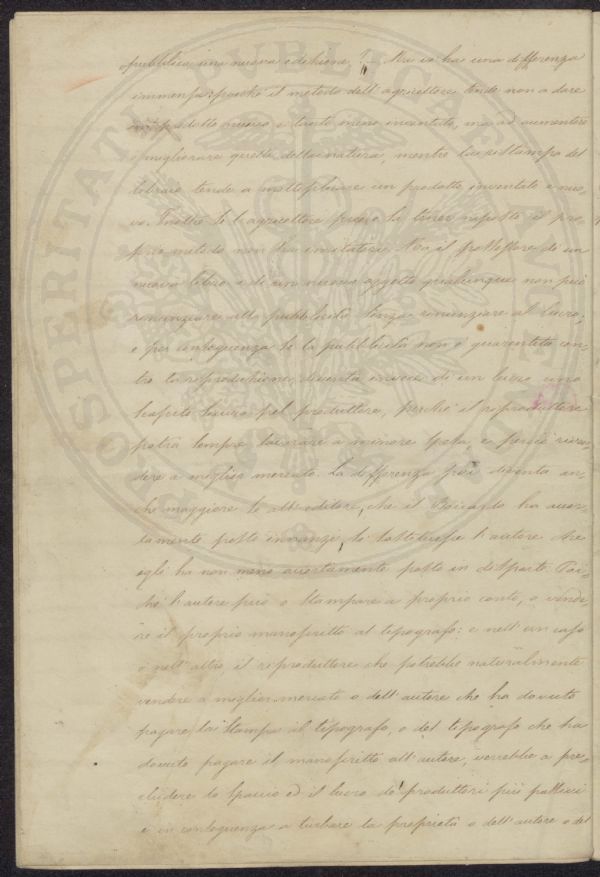 pubblica una nuova edizione? Ma vi ha una differenza
immensa; poichè il metodo dell'agricoltore tende non a dare
un prodotto nuovo, e tanto meno inventato, ma ad aumentare
e migliorare quello della natura, mentre la ristampa del
libraio tende a moltiplicare un prodotto inventato e nuo-
vo. Inoltre se l'agricoltore può o sa tener nascosto il pro-
prio metodo non ha imitatori. Ma il produttore di un
nuovo libro e di un nuovo oggetto qualunque non può
renunziare alla pubblicità senza renunziare al lucro,
e per conseguenza se la pubblicità non è guarentita con-
tro la reproduzione, diventa invece di un lucro una
scapito sicuro pel produttore, perchè il reproduttore
potrà sempre lavorare a minore spesa, e perciò riven-
dere a miglior mercato. La differenza poi diventa an-
che maggiore se all'editore, che il Boccardo ha accor-
tamente posto innanzi, si sostituisce l'autore che
egli ha non meno accortamente posto in disparte. Poi-
chè l'autore può o stampare a proprio conto, o vende-
re il proprio manoscritto al tipografo: e nell'un caso
e nell'altro il reproduttore che potrebbe naturalmente
vendere a miglior mercato o dell'autore che ha dovuto
pagare la stampa al tipografo, o del tipografo che ha
dovuto pagare il manoscritto all'autore, verrebbe a pre-
cludere lo spaccio ed il lucro de' produttori più
e in conseguenza a turbare la proprietà o dell'autore o del
PROSPERITATI PUBLICAE AUGENDAE